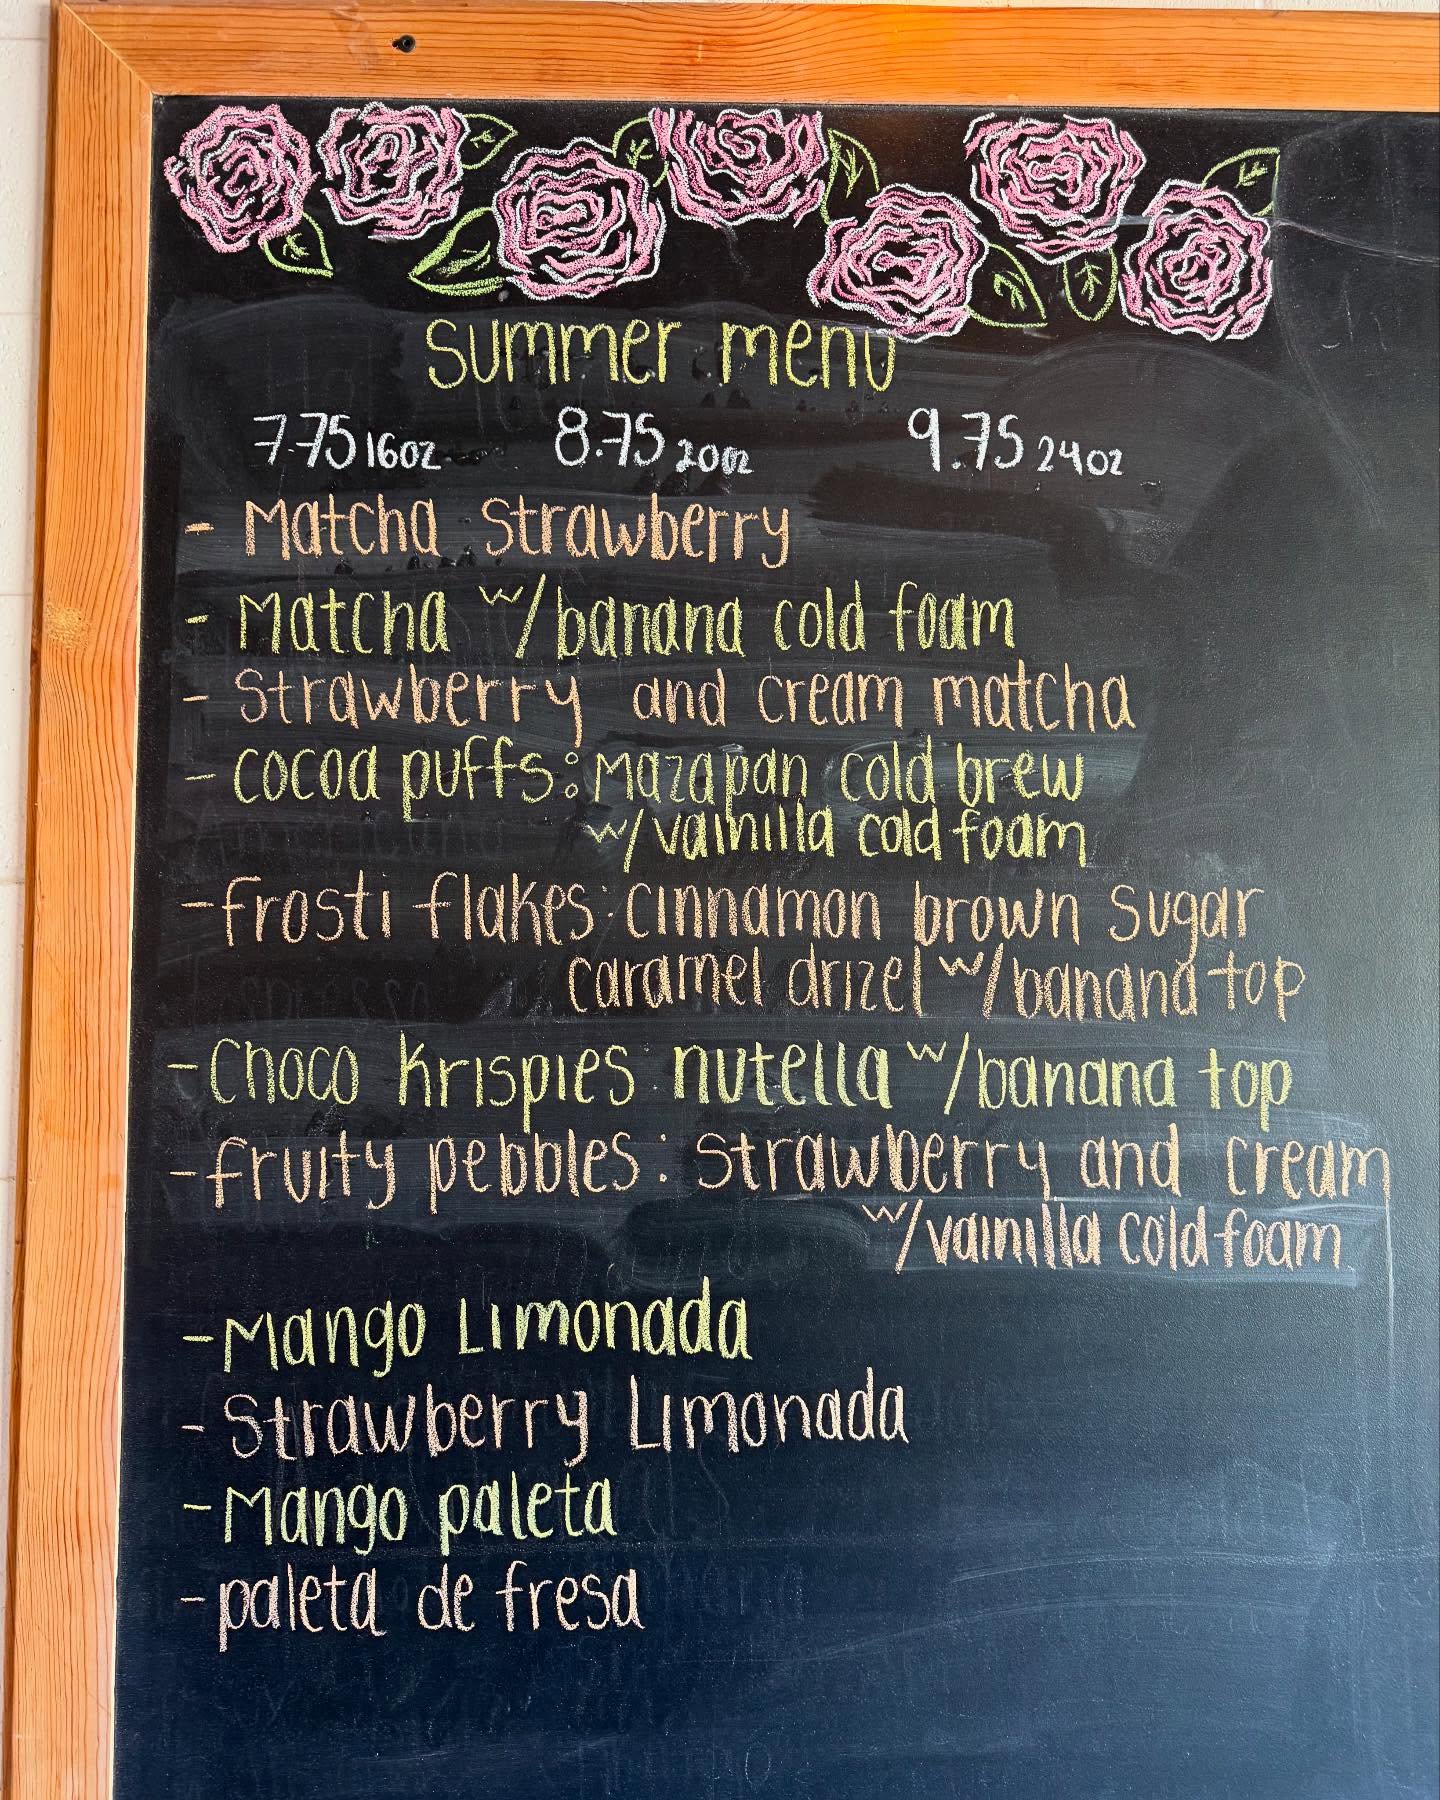 summer menu
7.75 16oz 8.75 20oz 9.75 24oz
- Matcha Strawberry
- Matcha w/banana cold foam
- Strawberry and cream matcha
- cocoa puffs: Mazapan cold brew
w/vainilla cold foam
- frosti flakes: cinnamon brown sugar
caramel drizel w/banana top
- Choco Krispies: nutella w/banana top
- fruity pebbles: Strawberry and cream
w/vainilla cold foam
- Mango Limonada
- Strawberry Limonada
- Mango paleta
- paleta de fresa